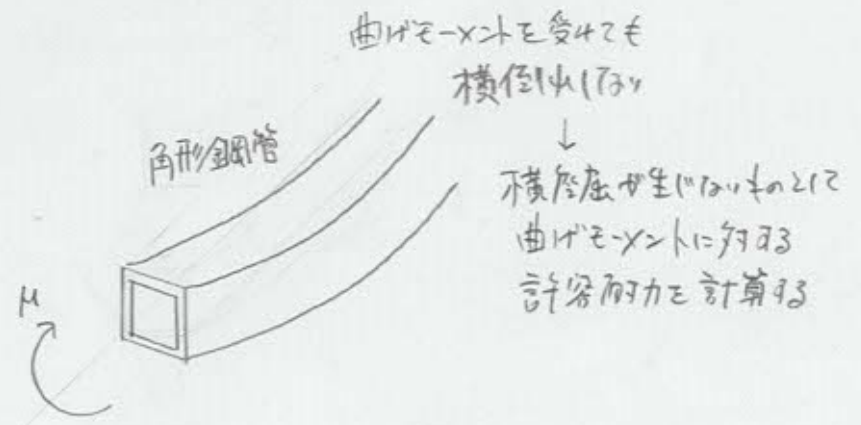 曲げモーメントを受けても
横倒れしない
角形鋼管
↓
横座屈が生じないものとして
曲げモーメントに対する
許容耐力を計算する
M